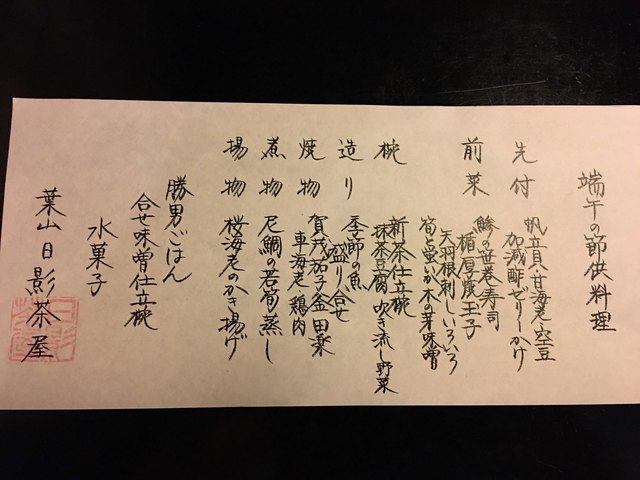 端午の節供料理
先付 帆立貝・甘海老・空豆
加減酢ゼリーかけ
前菜 鯵の笹巻寿司
楯厚焼玉子
矢羽根刺しいろいろ
筍と蛍いか木の芽味噌
椀 新茶仕立椀
抹茶豆腐 吹き流し野菜
造り 季節の魚
盛り合せ
焼物 賀茂茄子金田楽
車海老 鶏肉
煮物 尼鯛の若筍蒸し
揚物 桜海老のかき揚げ
勝男ごはん
合せ味噌仕立椀
水菓子
葉山日影茶屋